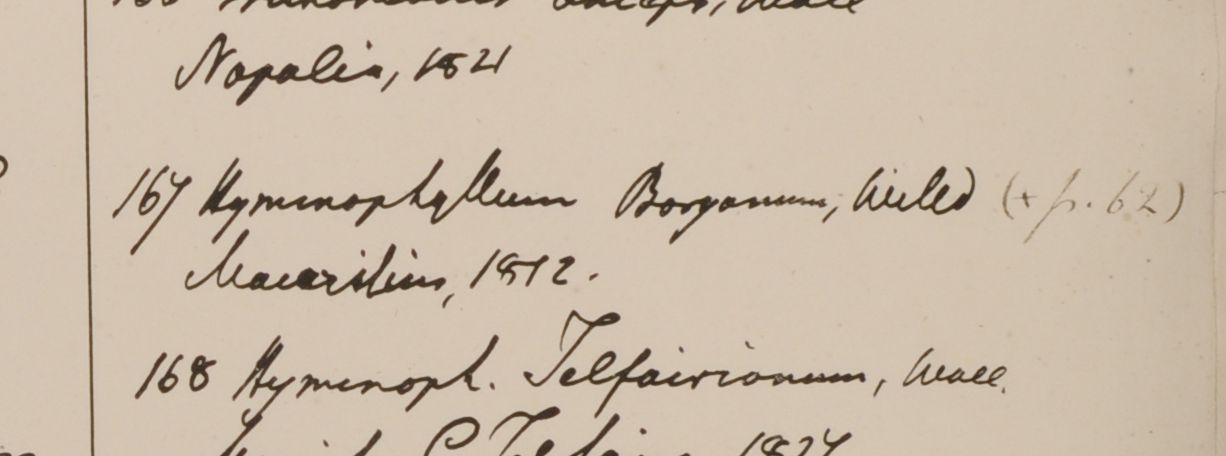 Napalia, 1821
167 Hymenophyllum Boryanum, Willd (+ p. 62)
Mauritius, 1812.
168 Hymenoph. Telfairianum, Wall.
1827